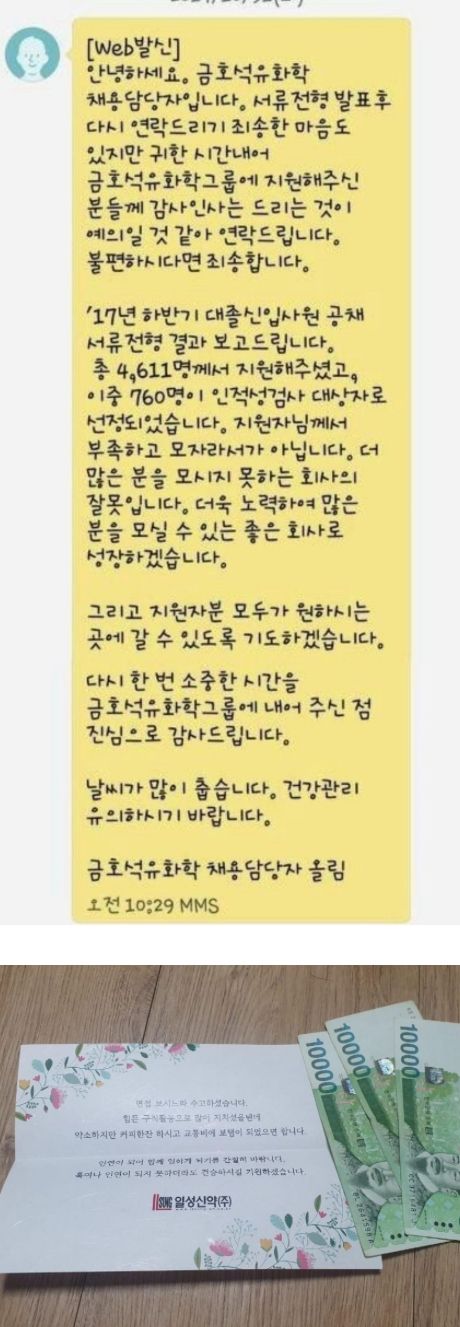 [Web발신]
안녕하세요. 금호석유화학
채용담당자입니다. 서류전형 발표후
다시 연락드리기 죄송한 마음도
있지만 귀한 시간내어
금호석유화학그룹에 지원해주신
분들께 감사인사는 드리는 것이
예의일 것 같아 연락드립니다.
불편하시다면 죄송합니다.
'17년 하반기 대졸신입사원 공채
서류전형 결과 보고드립니다.
총 4,611명께서 지원해주셨고,
이중 760명이 인적성검사 대상자로
선정되었습니다. 지원자님께서
부족하고 모자라서가 아닙니다. 더
많은 분을 모시지 못하는 회사의
잘못입니다. 더욱 노력하여 많은
분을 모실 수 있는 좋은 회사로
성장하겠습니다.
그리고 지원자분 모두가 원하시는
곳에 갈 수 있도록 기도하겠습니다.
다시 한 번 소중한 시간을
금호석유화학그룹에 내어 주신 점
진심으로 감사드립니다.
날씨가 많이 춥습니다. 건강관리
유의하시기 바랍니다.
금호석유화학 채용담당자 올림
오전 10:29 MMS
면접 보시느라 수고하셨습니다.
힘든 구직활동으로 많이 지치셨을텐데
약소하지만 커피한잔 하시고 교통비에 보탬이 되었으면 합니다.
인연이 되어 함께 일하게 되기를 간절히 바랍니다.
혹여나 인연이 되지 못하더라도 건승하시길 기원하겠습니다.
ILSUNG 일성신약(주)
10000
10000
10000